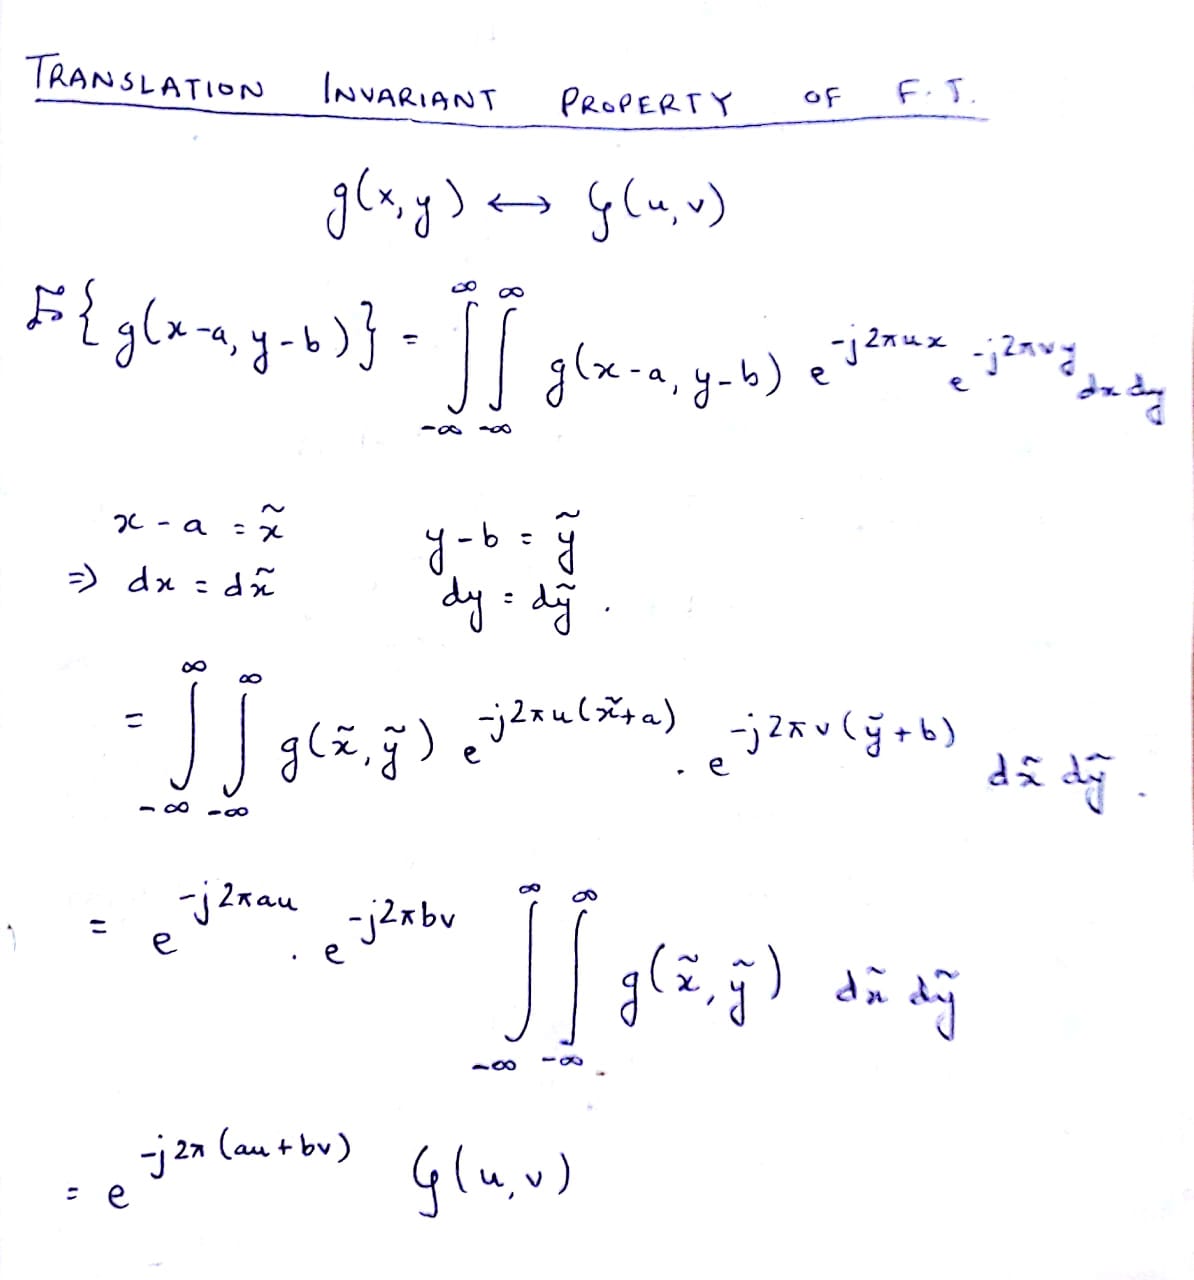 TRANSLATION INVARIANT PROPERTY OF F.T.
g(x,y) ↔ G(u,v)
F{g(x-a, y-b)} = ∫_{-∞}^{∞} ∫_{-∞}^{∞} g(x-a, y-b) e^{-j2πux} e^{-j2πvy} dx dy
x - a = x̃ y - b = ỹ
⇒ dx = dx̃ dy = dỹ .
= ∫_{-∞}^{∞} ∫_{-∞}^{∞} g(x̃, ỹ) e^{-j2πu(x̃+a)} . e^{-j2πv(ỹ+b)} dx̃ dỹ .
= e^{-j2πau} . e^{-j2πbv} ∫_{-∞}^{∞} ∫_{-∞}^{∞} g(x̃, ỹ) dx̃ dỹ
= e^{-j2π(au+bv)} G(u,v)